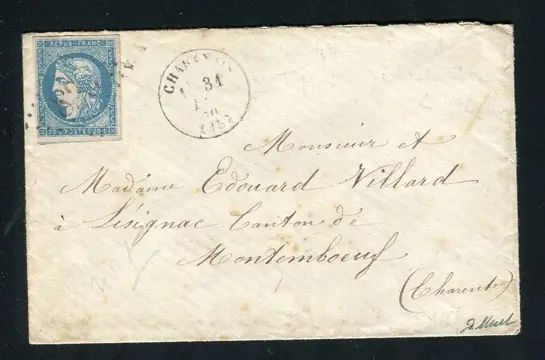 REPUB. FRANC.
20 C. POSTES 20 C.
31
(15)
Monsieur et
Madame Edouard Villard
à Lésignac Canton de
Montemboeuf
(Charente)